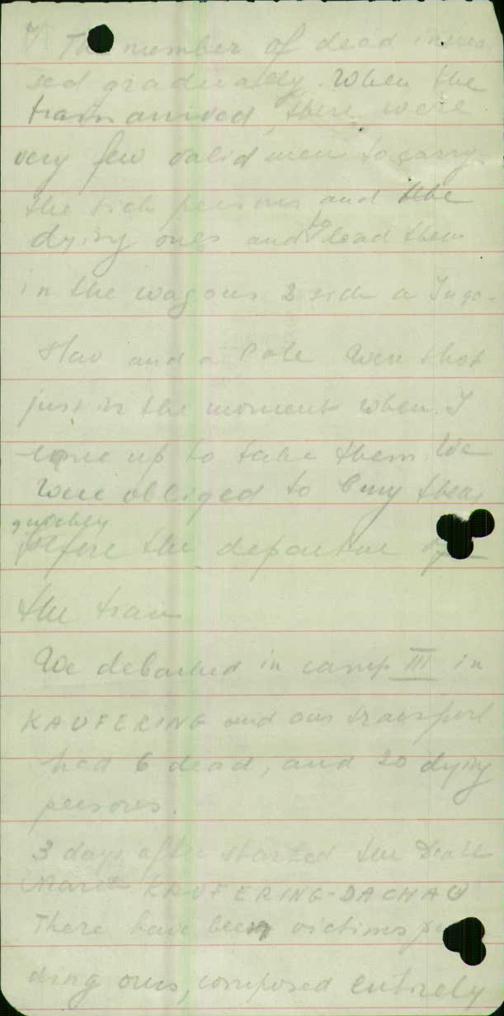 7 The number of dead increa-
sed gradually. When the
train arrived, there were
very few valid men to carry
the sick persons and the
dying ones and to load them
in the wagons 2 sick a Jugo-
slav and a Pole were shot
just in the moment when I
come up to take them. We
were obliged to bury them
quickly
before the departure of
the train
We debarked in camp III in
KAUFERING and our transport
had 6 dead, and 20 dying
persons.
3 days after started the Death
March KAUFERING-DACHAU
There have been victims
ding ours, composed entirely